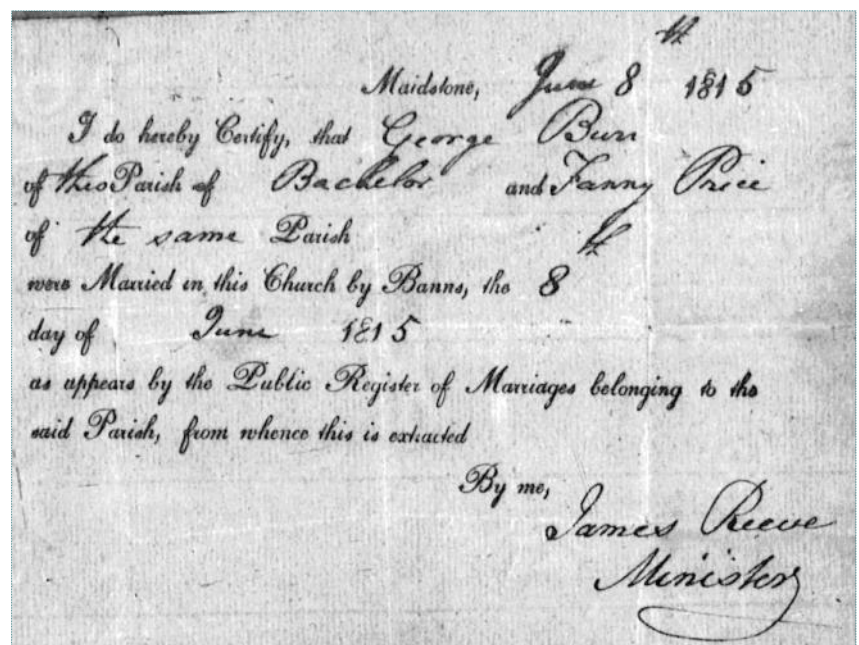 Maidstone, June 8th 1815
I do hereby Certify, that George Burr
of this Parish of Bachelor and Fanny Price
of the same Parish
were Married in this Church by Banns, the 8th
day of June 1815
as appears by the Public Register of Marriages belonging to the
said Parish, from whence this is extracted
By me,
James Reeve
Minister